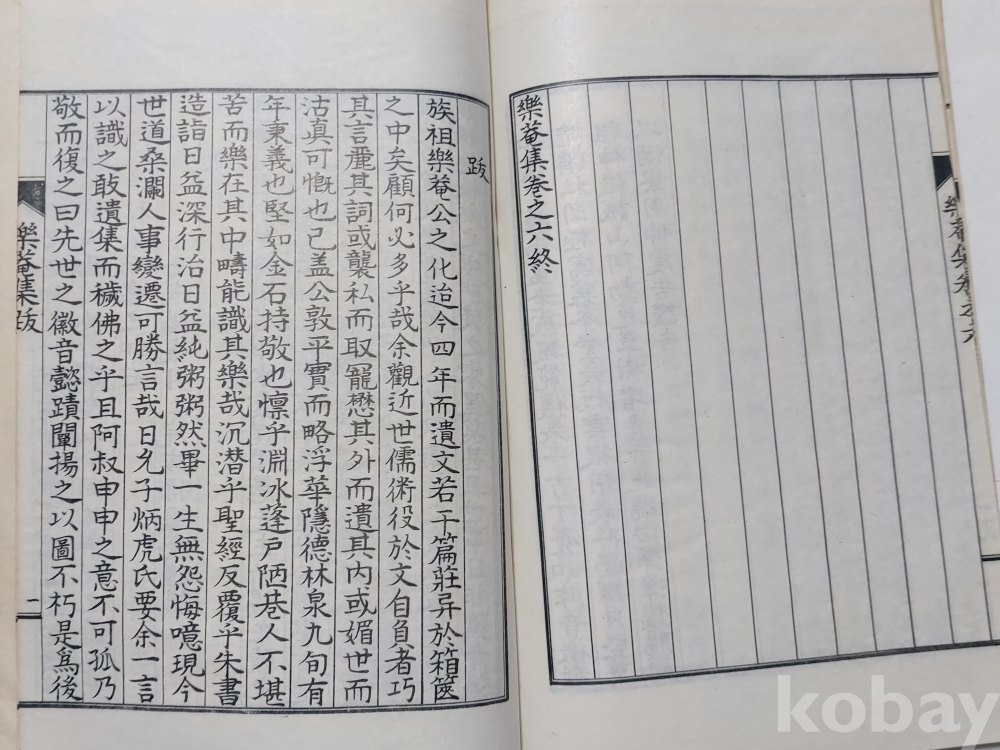 樂菴集卷之六
樂菴集卷之六終
跋
族祖樂菴公之化迨今四年而遺文若干篇莊弆於箱篋
之中矣顧何必多乎哉余觀近世儒術役於文自負者巧
其言麗其詞或襲私而取寵懋其外而遺其內或媚世而
沽真可慨也已盖公敦平實而略浮華隱德林泉九旬有
年秉義也堅如金石持敬也懍乎淵冰蓬戶陋巷人不堪
苦而樂在其中疇能識其樂哉沉潜乎聖經反覆乎朱書
造詣日益深行治日益純粥粥然畢一生無怨悔噫現今
世道桑瀾人事變遷可勝言哉日允子炳虎氏要余一言
以識之敢遺集而穢佛之乎且阿叔申申之意不可孤乃
敬而復之曰先世之徽音懿蹟闡揚之以圖不朽是爲後
樂菴集 跋
一
kobay